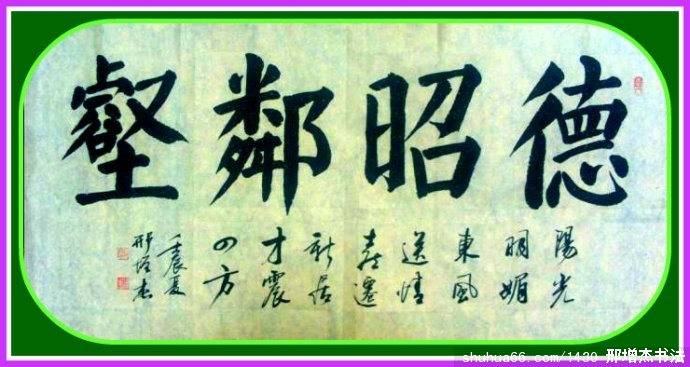 德昭鄰壑
陽光
明媚
東風
送情
喜遷
新居
才震
四方
壬辰夏
邢增杰
shuhua66.com/1430 邢增杰书法